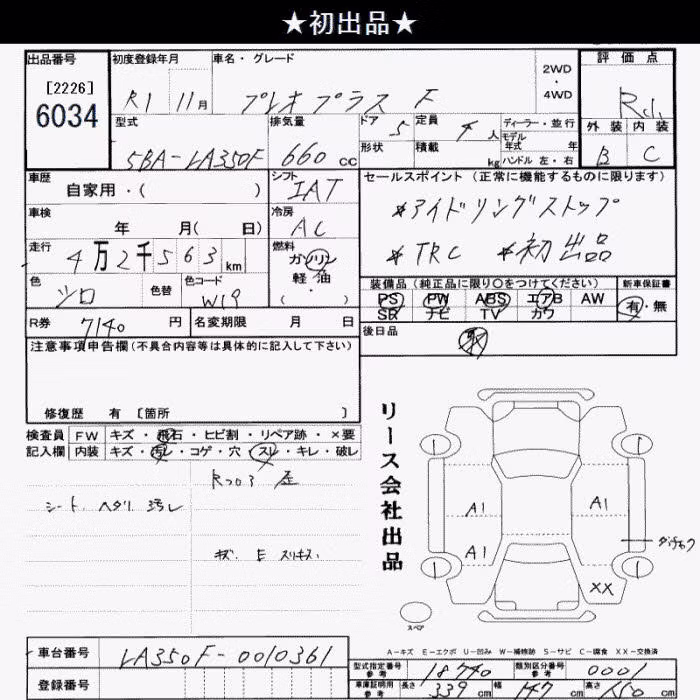 ★初出品★
出品番号
[2226]
6034
初度登録年月
R1 11月
車名・グレード
プレオプラス F
2WD
・
4WD
評価点
外装 内装
B C
型式
5BA-LA350F
排気量
660 cc
ドア 5
形状
定員 4 人
積載 kg
ディーラー・並行
モデル年式 年
ハンドル 左・右
車歴
自家用・( )
シフト
IAT
セールスポイント(正常に機能するものに限ります)
*アイドリングストップ
*TRC *初出品
車検
年 月( 日)
冷房
AC
走行
4万2千563km
燃料
ガソリン
軽・油
( ・ )
色
シロ
色替
色コード
W19
装備品(純正品に限り○をつけてください)
PS PW ABS エアB AW
SR ナビ TV カワ
新車保証書
有・無
R券 7140 円
名変期限 月 日
後日品
注意事項申告欄(不具合内容等は具体的に記入して下さい)
修復歴 有 [箇所 ]
検査員記入欄
FW キズ・飛石・ヒビ割・リペア跡・×要
内装 キズ・汚レ・コゲ・穴・スレ・キレ・破レ
シート ヘタリ 汚レ
リース会社出品
A1
A1
A1
XX
スペア
A-キズ E-エクボ U-凹み W-補修跡 S-サビ C-腐食 XX-交換済
車台番号
LA350F-0010361
登録番号
型式指定番号
参考
18740
類別区分番号
参考
0001
車庫証明用
参考
長さ 339 cm
幅 147 cm
高さ 150 cm